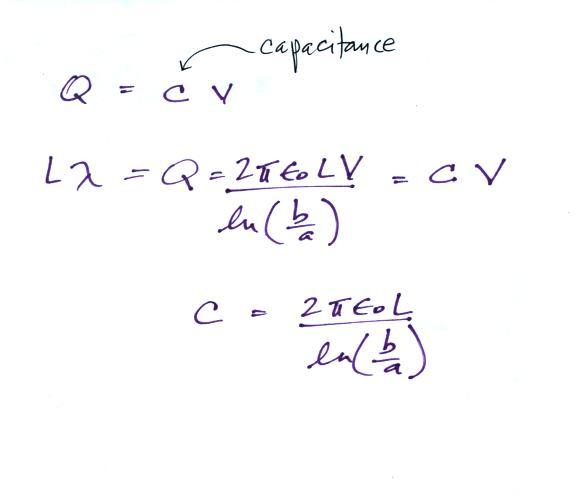 capacitance
Q = C V
Lλ = Q = 2πϵ₀LV / ln(b/a) = C V
C = 2πϵ₀L / ln(b/a)